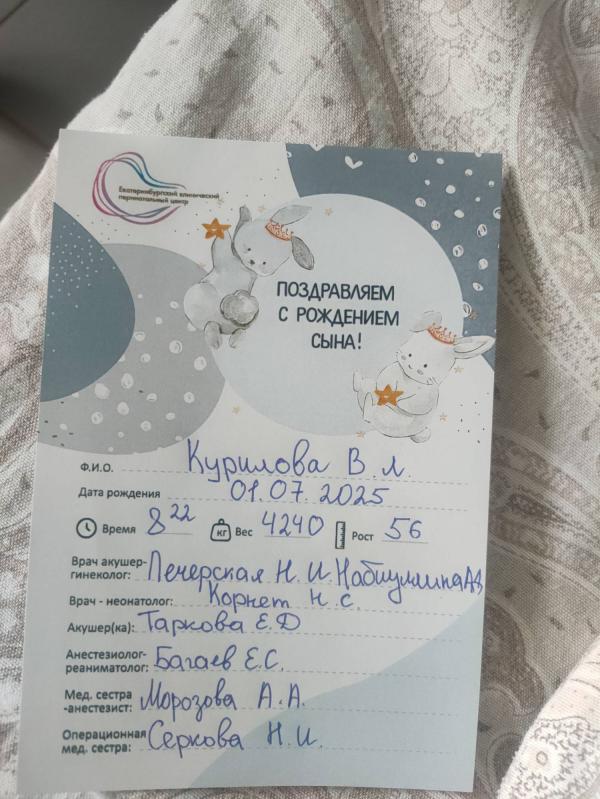 Екатеринбургский клинический
перинатальный центр
ПОЗДРАВЛЯЕМ
С РОЖДЕНИЕМ
СЫНА!
Ф.И.О. Курилова В. Л.
Дата рождения 01.07.2025
Время 8 22 кг Вес 4240 Рост 56
Врач акушер-
гинеколог: Печерская Н. И. Набиуллина
Врач - неонатолог: Корнет Н. С.
Акушер(ка): Таркова Е.Д
Анестезиолог-
реаниматолог: Багаев Е.С.
Мед. сестра
-анестезист: Морозова А. А.
Операционная
мед. сестра: Серкова Н. И.